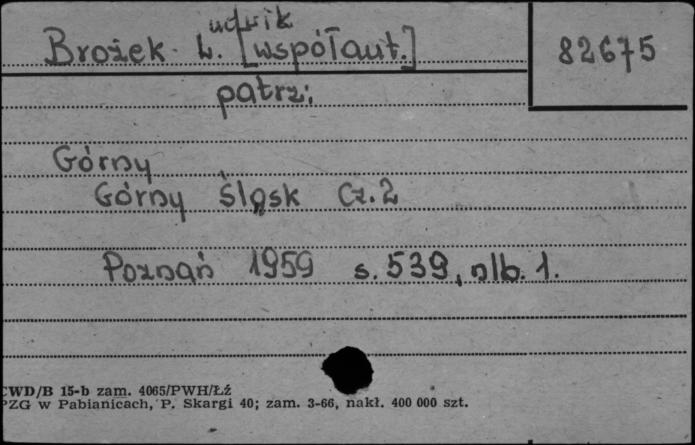 Brożek L.udwik [współaut.]
82675
patrz:
Górny
Górny Śląsk Cz.2
Poznań 1959 s. 539, nlb. 1.
CWD/B 15-b zam. 4065/PWH/Łź
PZG w Pabianicach, P. Skargi 40; zam. 3-66, nakł. 400 000 szt.